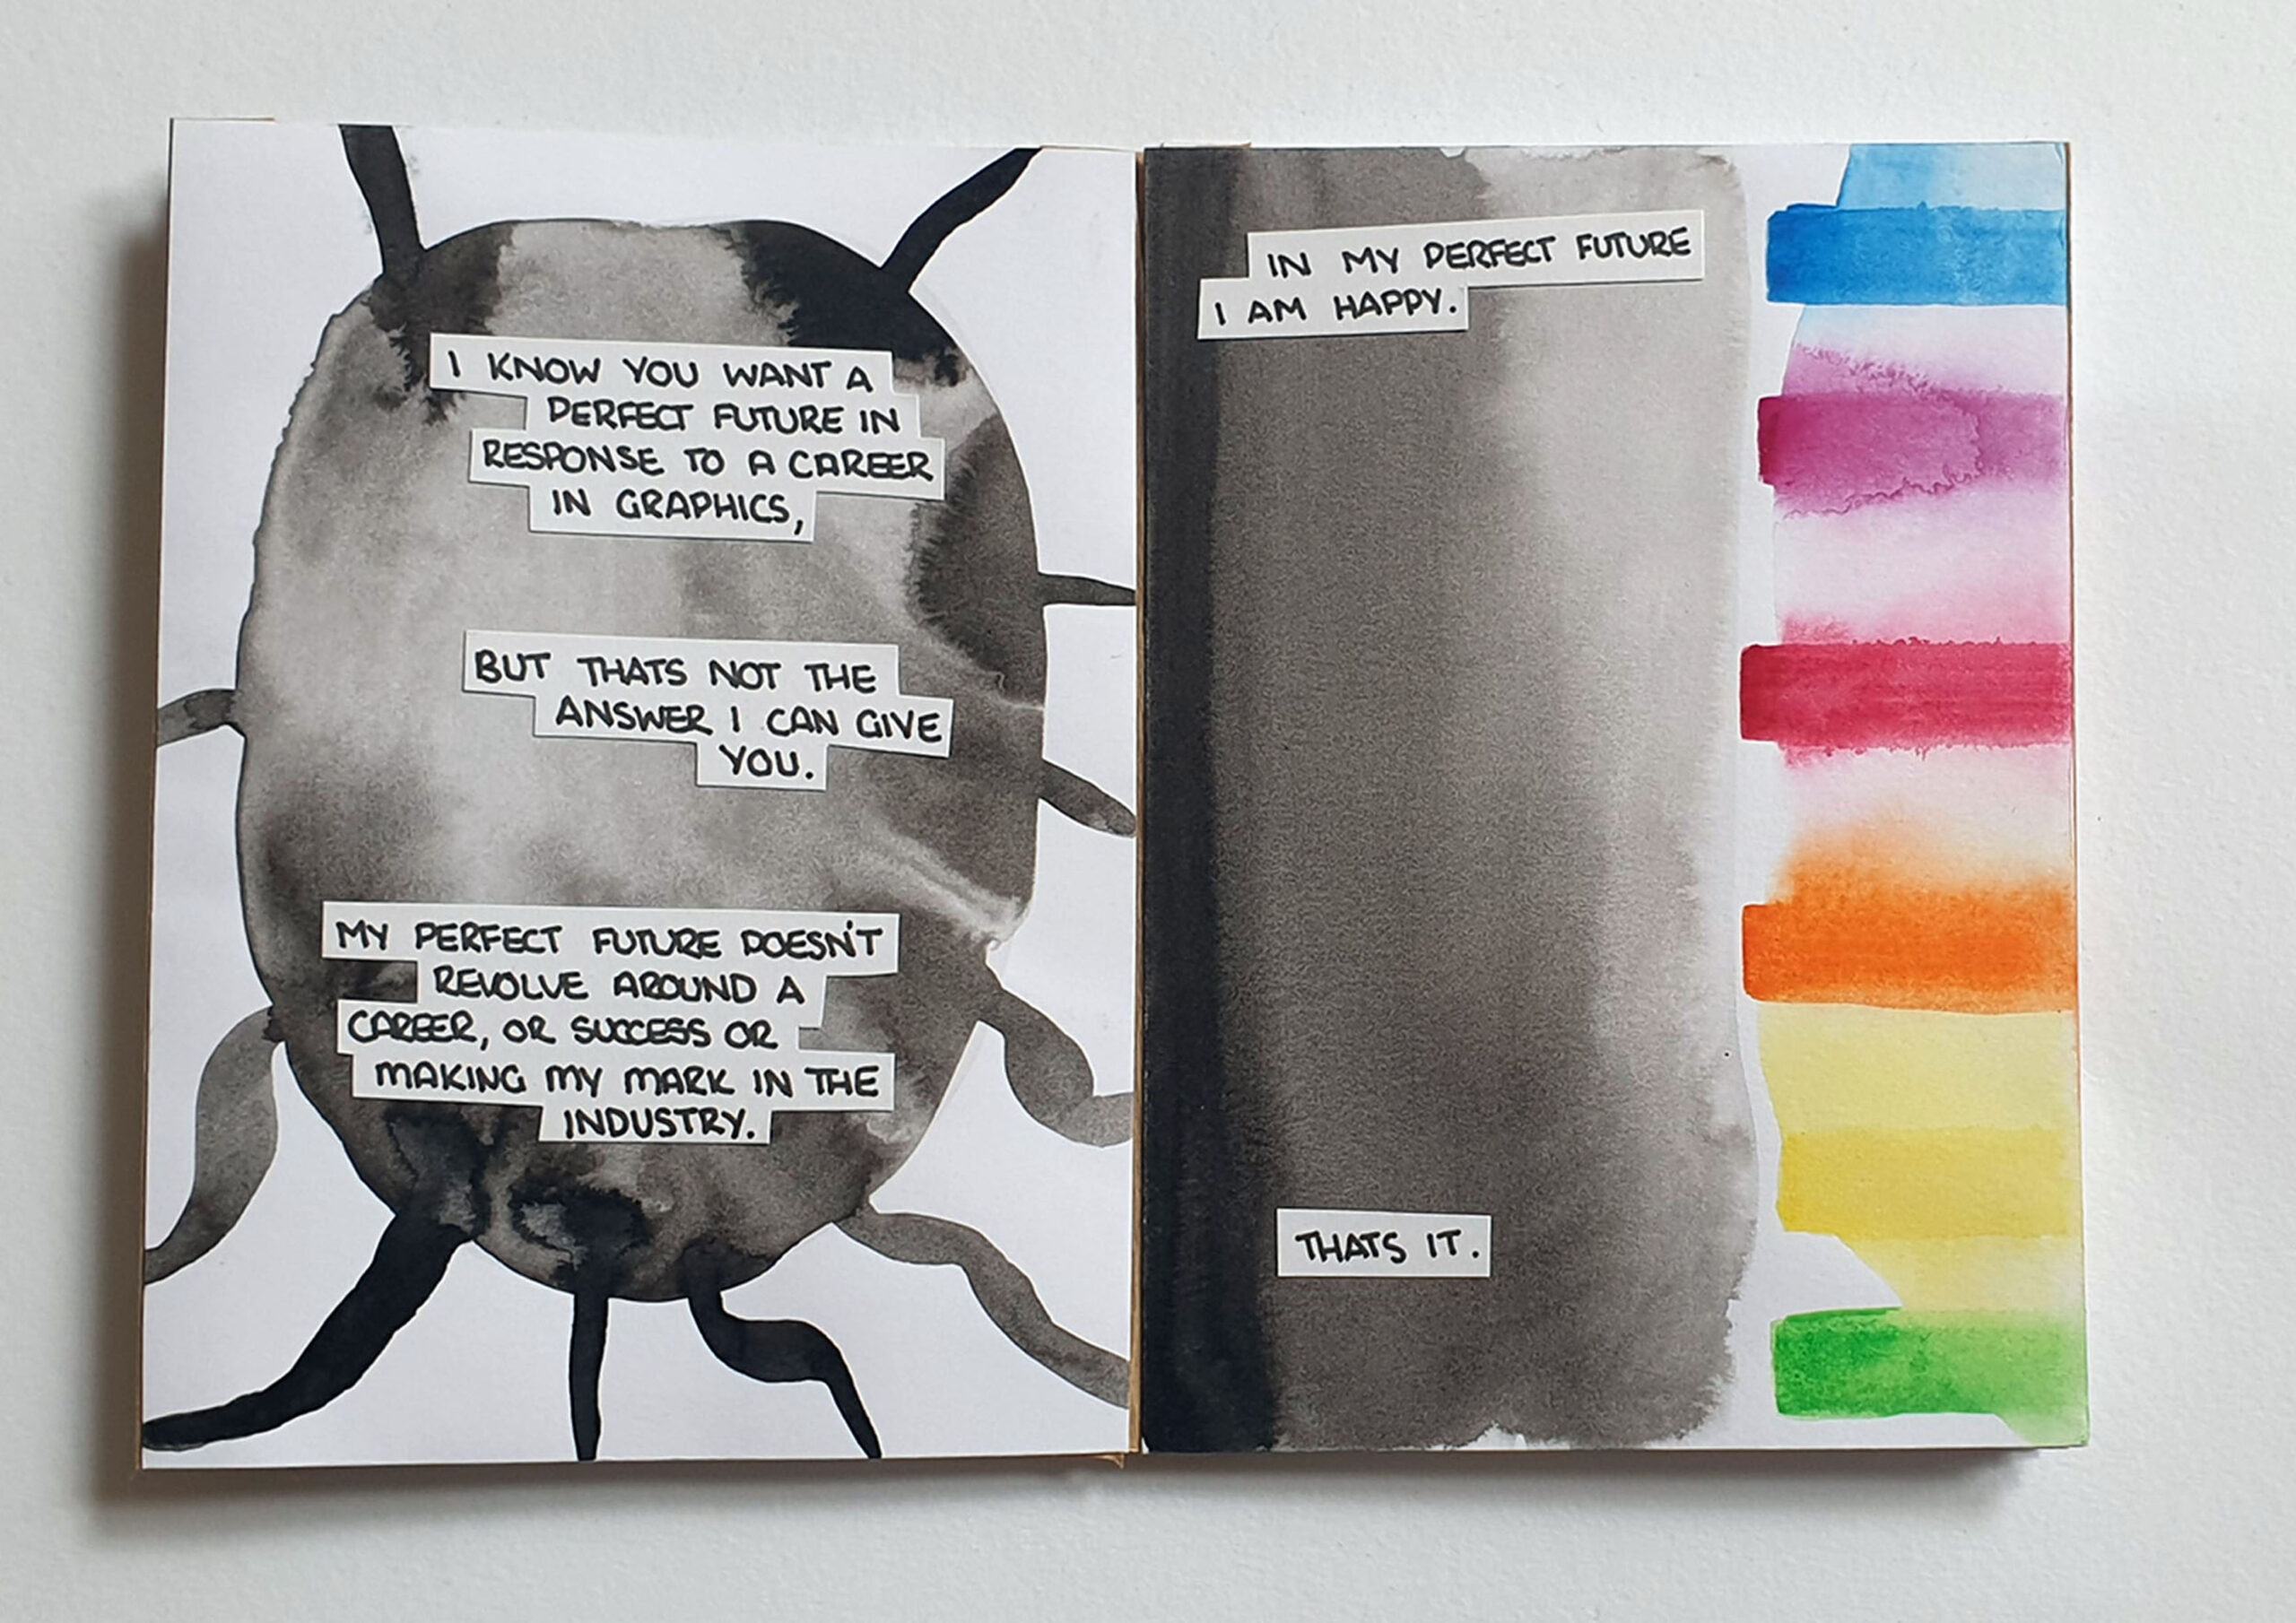 I KNOW YOU WANT A
PERFECT FUTURE IN
RESPONSE TO A CAREER
IN GRAPHICS,
BUT THATS NOT THE
ANSWER I CAN GIVE
YOU.
MY PERFECT FUTURE DOESN'T
REVOLVE AROUND A
CAREER, OR SUCCESS OR
MAKING MY MARK IN THE
INDUSTRY.
IN MY PERFECT FUTURE
I AM HAPPY.
THATS IT.